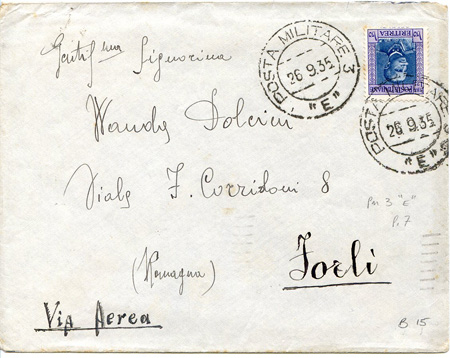 Gentil.ma Signorina
POSTA MILITARE 3
26.9.35
"E"
POSTE ITALIANE
ERITREA
POSTA MILITARE
26.9.35
"E"
Wanda Dolcini
Viale F. Corridoni 8
Pm 3 "E"
P. 7
Forlì
(Romagna)
Via Aerea
B 15